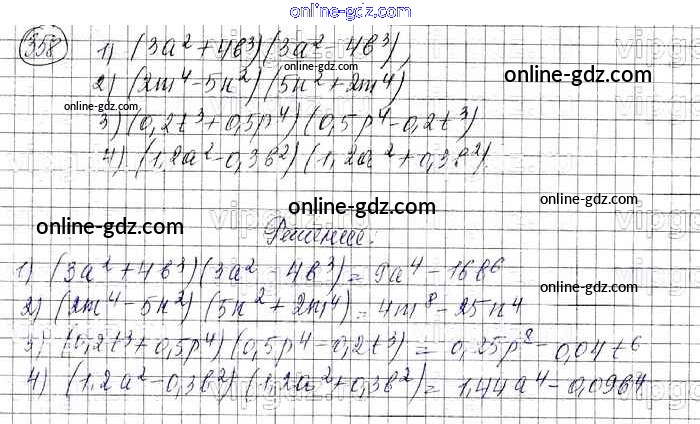 online-gdz.com
358 1) (3a² + 4b³)(3a² - 4b³),
2) (2m⁴ - 5n²)(5n² + 2m⁴)
online-gdz.com
online-gdz.com
3) (0,2t³ + 0,5p⁴)(0,5p⁴ - 0,2t³)
4) (1,2a² - 0,3b²)(1,2a² + 0,3b²).
online-gdz.com
online-gdz.com
online-gdz.com
Решение:
1) (3a² + 4b³)(3a² - 4b³) = 9a⁴ - 16b⁶
2) (2m⁴ - 5n²)(5n² + 2m⁴) = 4m⁸ - 25n⁴
3) (0,2t³ + 0,5p⁴)(0,5p⁴ - 0,2t³) = 0,25p⁸ - 0,04t⁶
4) (1,2a² - 0,3b²)(1,2a² + 0,3b²) = 1,44a⁴ - 0,09b⁴